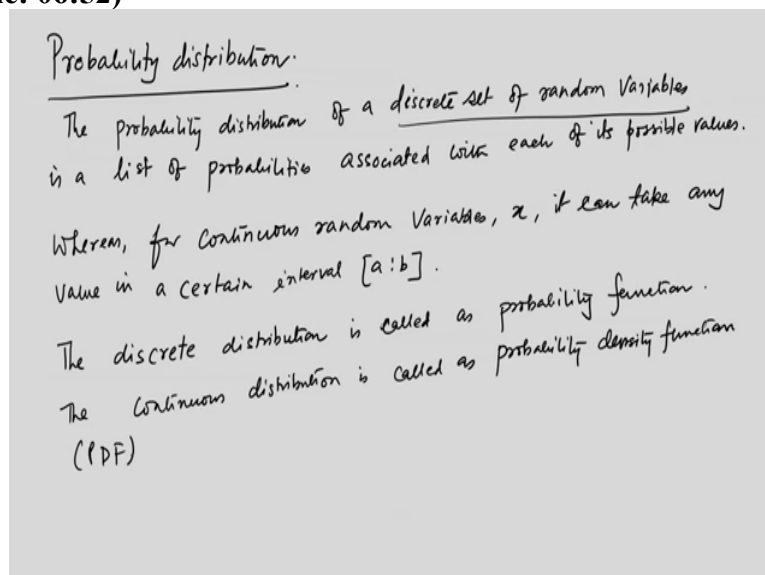 Probability distribution.
The probability distribution of a discrete set of random variables
is a list of probabilities associated with each of its possible values.
Whereas, for continuous random variables, x, it can take any
value in a certain interval [a:b].
The discrete distribution is called as probability function.
The continuous distribution is called as probability density function
(PDF)